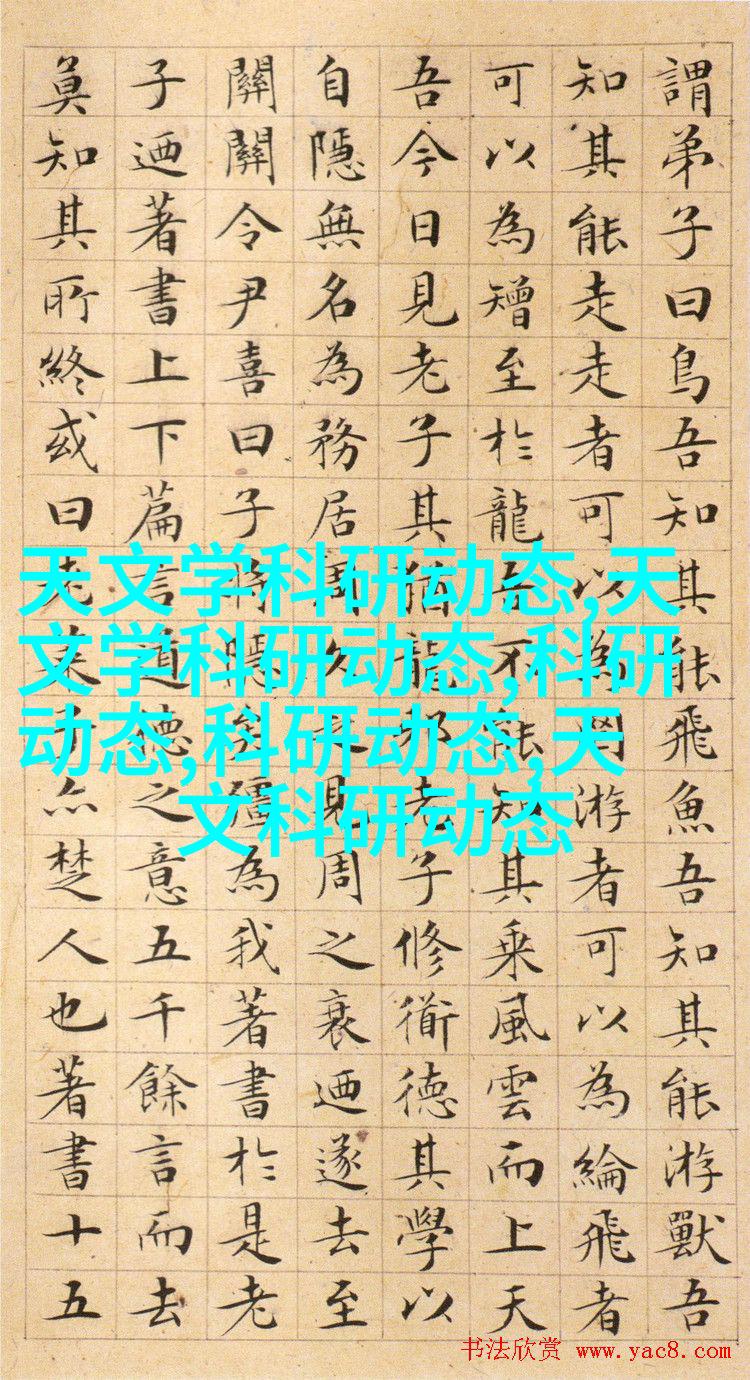 謂弟子曰鳥吾知其能飛魚吾知其能游獸吾
知其能走走者可以為罔游者可以為綸飛者
可以為矰至於龍吾不能知其乘風雲而上天
吾今日見老子其猶龍邪老子修衟德其學以
自隱無名為務居周久之見周之衰迺遂去至
關關令尹喜曰子將隱矣彊為我著書於是老
子迺著書上下篇言道德之意五千餘言而去
莫知其所終或曰老萊子亦楚人也著書十五
天文学科研动态,天
文学科研动态,科研
动态,科研动态,天
文科研动态
书法欣赏 www.yac8.com